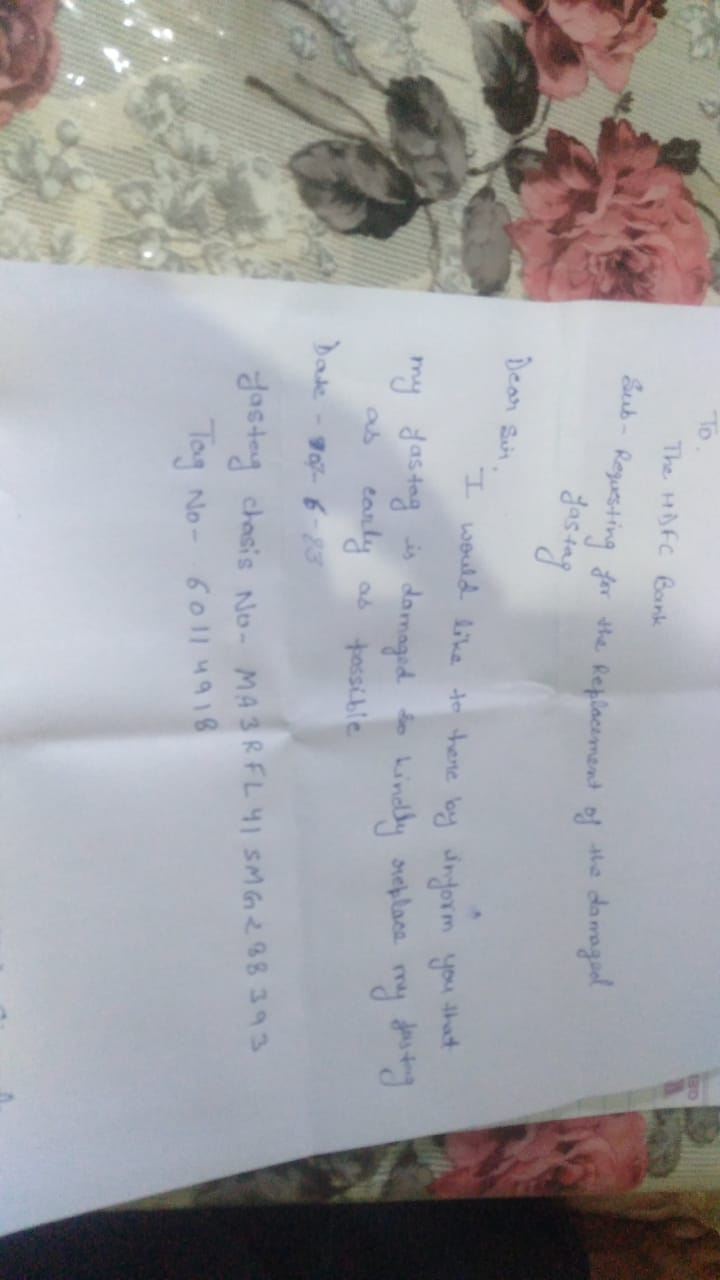 To.
The HDFC Bank
Sub- Requsting for the Replacement of the damaged
fastag
Dear Sir,
I would like to here by inform you that
my fastag is damaged so kindly replace my fastag
as early as possible
Date - 6-23
fastag chasis No- MA3RFL41SMG288393
Tag No- 60114918